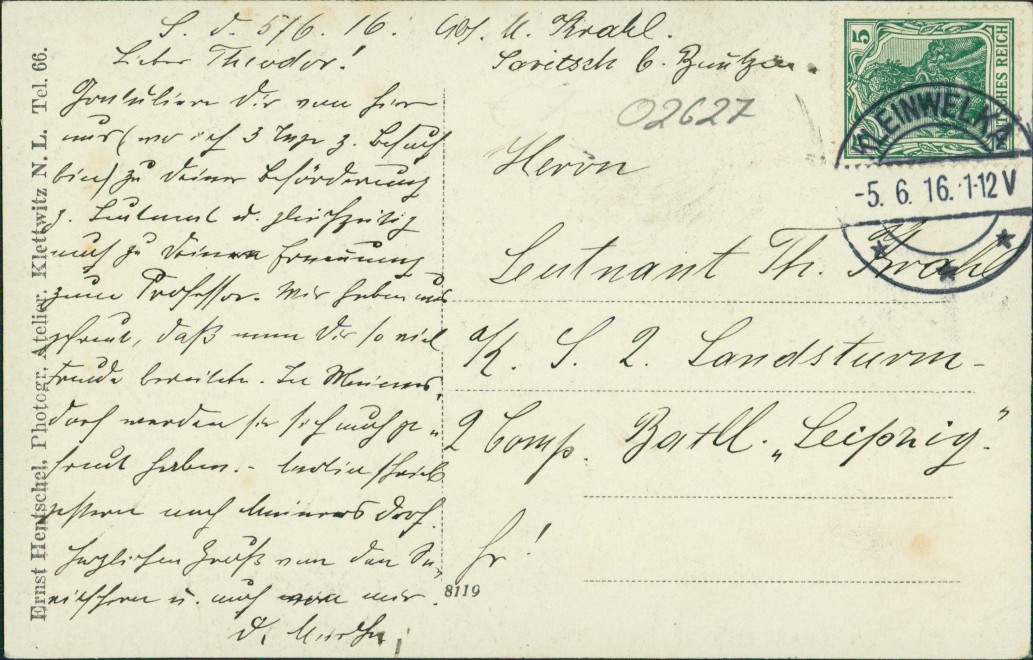 S. d. 5/6. 16. Abs. M. Krahl.
Saritsch b. Bautzen.
Lieber Theodor!
Gratuliere Dir von hier
aus (wo ich 3 Tage z. Besuch
bin) zu Deiner Beförderung
z. Leutnant u. gleichzeitig
auch zu Deiner Ernennung
zum Professor. Wir haben uns
gefreut, daß man Dir so viel
Freude bereitete. In Meiners-
dorf werden sie sich auch ge-
freut haben. - schrieb
gestern nach Meinersdorf.
Herzlichen Gruß von den Sa-
ritschern u. auch von mir.
D. Martha
Ernst Hentschel, Photogr. Atelier. Klettwitz N. L. Tel. 66.
8119
5
DEUTSCHES REICH
KLEINWELKA
-5. 6. 16. 1-12 V
02627
Herrn
Leutnant Th. Krahl
K. S. 2. Landsturm-
2 Comp. Batll. „Leipzig".
fr!